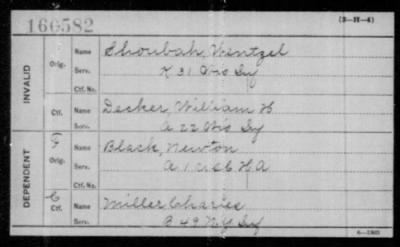 160582
(3-H-4)
INVALID
Orig.
Name Shoubah, Wentzel
Serv. K 31 Wis Inf
Ctf. No.
Ctf.
Name Decker, William H
Serv. A 22 Wis Inf
DEPENDENT
Orig.
Name Black, Newton
Serv. A 1 H A
Ctf. No.
C
Ctf.
Name Miller Charles
Serv. B 49 N Y Inf